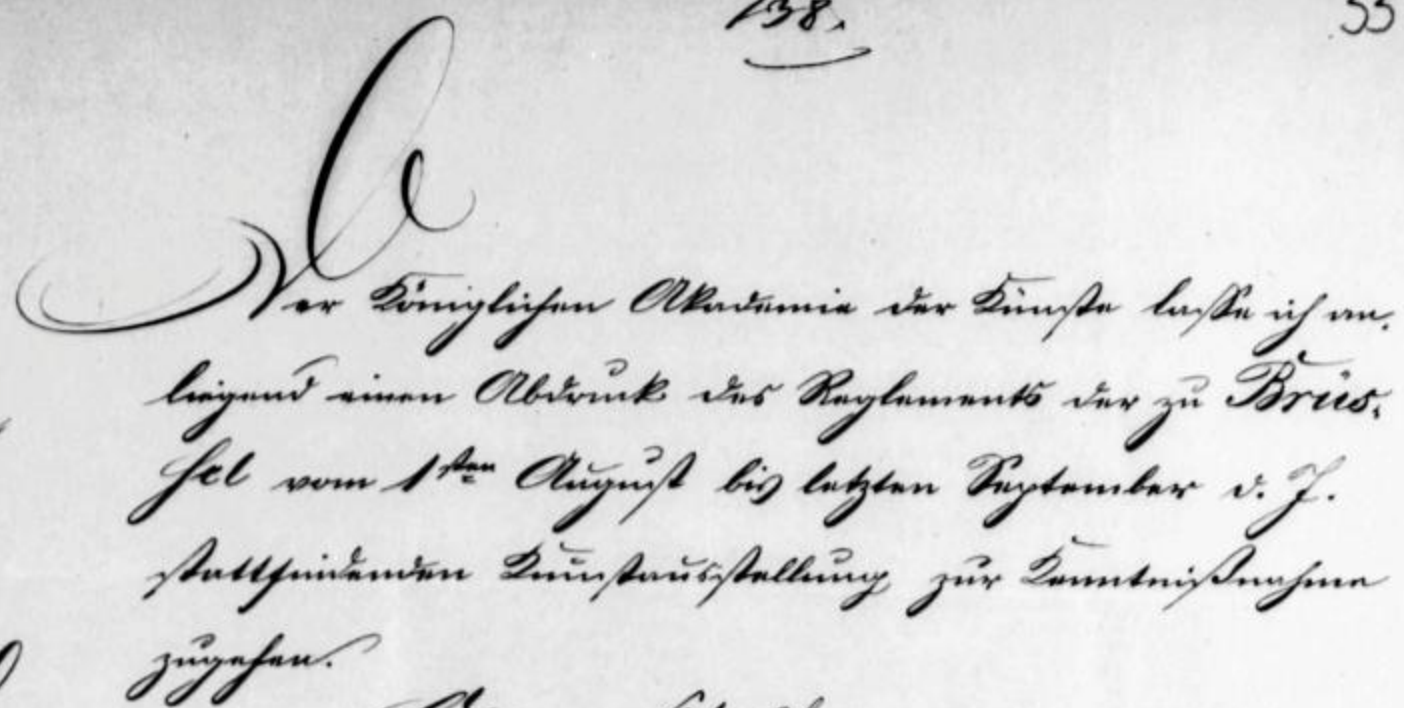 138.
55
Der Königlichen Akademie der Künste lasse ich an-
liegend einen Abdruck des Reglements der zu Brüs-
sel vom 1sten August bis letzten September d. J.
stattfindenden Kunstausstellung zur Kenntnißnahme
zugehen.